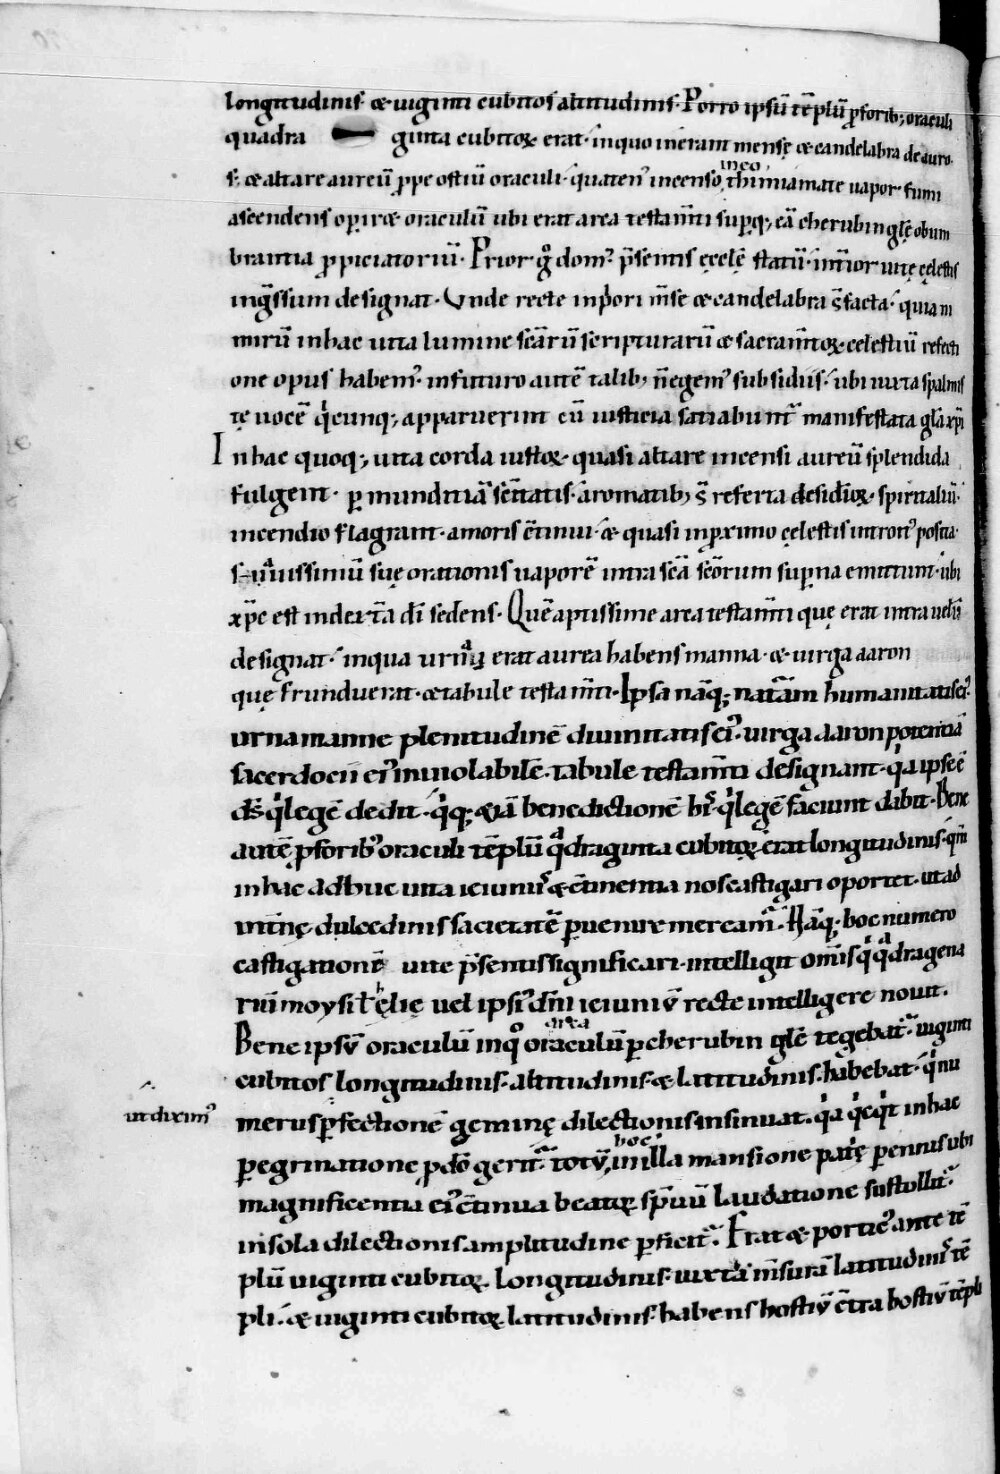 longitudinis· & uiginti cubitos altitudinis· Porro ipsū tēplū p̄forib; oraculi
quadra ginta cubitoꝝ erat· inquo inerant mensę & candelabra de auro·
s; & altare aureū ꝓpe ostiū oraculi· quaten᾿ incenso ineo thimiamate uapor fumi
ascendens opirꝫ oraculū ubi erat arca testam̄ti supqꝫ eā cherubin glę obum
brantia ꝓpiciatoriū· Prior g° dom᾿ p̄sentis ęcclę statū· int̄ior uitę cęlestis
inḡssum designat· Vnde recte inp̄ori m̄se & candelabra s̄ facta· quia ni
mirū inhac uita lumine scārū scripturarū & sacram̄toꝝ celestiū refecti
one opus habem᾿· infuturo autē talib; n̄ egem᾿ subsidiis· ubi iuxta spalmis
tę uocē qicunqꝫ apparuerint cū iusticia satiabunt᾿ manifestata glā xp̄i
Inhac quoqꝫ uita corda iustoꝝ quasi altare incensi aureū splendida
fulgent· p munditiā sc̄itatis· aromatib; s̄ referta desidioꝝ spiritaliū·
incendio flagrant· amoris c̄tinui· & quasi inp̄ximo cęlestis introit᾿ posita·
suauissimū suę orationis uaporē intra scā scōrum supna emittunt· ubi
xp̄c est indextā dī sedens· Quē aptissime arca testam̄ti quę erat intra uelū
designat· inqua urna erat aurea habens manna· & uirga aaron
quę frunduerat· & tabule testam̄ti· Ipsa nāqꝫ naturam humanitatis ei᾿·
urna manne plenitudinē diuinitatis ei᾿· uirga aaron potentiā
sacerdocii ei᾿ inuiolabilē· tabule testam̄ti designant· qa ipse ē
ds̄ qi legē dedit· qiqꝫ & iā benedictionē hīs qi legē faciunt dabit· Bene
autē p̄forib᾿ oraculi tēplū quadraginta cubitoꝝ erat longitudinis· qm̄
inhac adhuc uita ieiuniis & c̄tinentia nos castigari oportet· ut ad
int̄nę dulcedinis sacietatē puenire meream᾿· Nāqꝫ hoc numero
castigationē uite p̄sentis significari· intelligit om̄is qi quadragena
riū moysi ł hęlię uel ipsi᾿ dn̄i ieiuniū recte intelligere nouit.
Bene ipsū oraculū inq° arca oraculū p cherubin glę tegebat᾿· uiginti
cubitos longitudinis· altitudinis· & latitudinis· habebat· qi nu
ut dixim᾿
merus pfectionē geminę dilectionis insinuat· qa qicqit inhac
pegrinatione p do gerit᾿ totū hoc inilla mansione patrię pennis ubi
magnificentia ei᾿ c̄tinua beatoꝝ sp̄uū laudatione sustollit᾿·
insola dilectionis amplitudine pficit᾿· Erat & portic᾿ ante tē
plū uiginti cubitoꝝ longitudinis· iuxtā m̄surā latitudinis tē
pli· & uiginti cubitoꝝ latitudinis· habens hostiū c̄tra hostiū tēpli